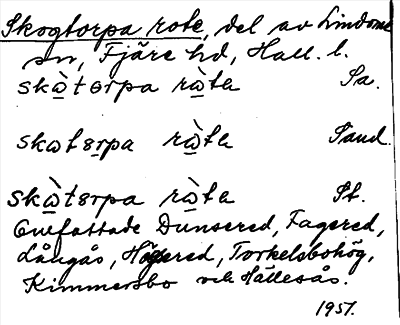 Skogtorpa rote, del av Lindome
sn, Fjäre hd, Hall. l.
skὼtɵrpa rὼta Sa.
skωtɵrpa rὼta Sand.
skὼtɵrpa rὼta St.
Omfattade Dunsered, Fagered,
Långås, Högsered, Torkelsbohög,
Kimmersbo och Hällesås.
1957.